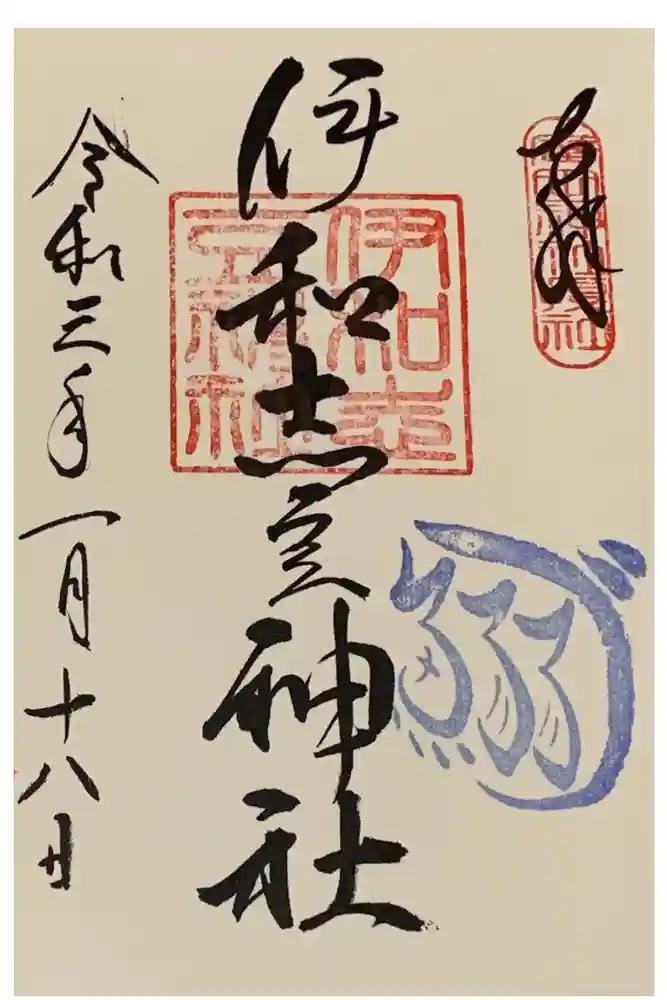 奉拝
伊和志豆神社
令和三年一月十八日
伊和志
豆神社
鰯づ